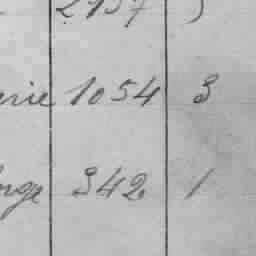 2957
erie 1054 3
orge 342 1